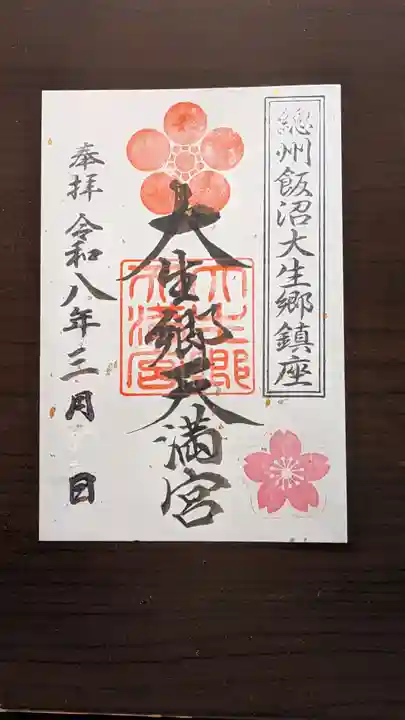 總州飯沼大生郷鎮座
大生郷天満宮
大生郷天満宮
奉拝 令和八年三月 日